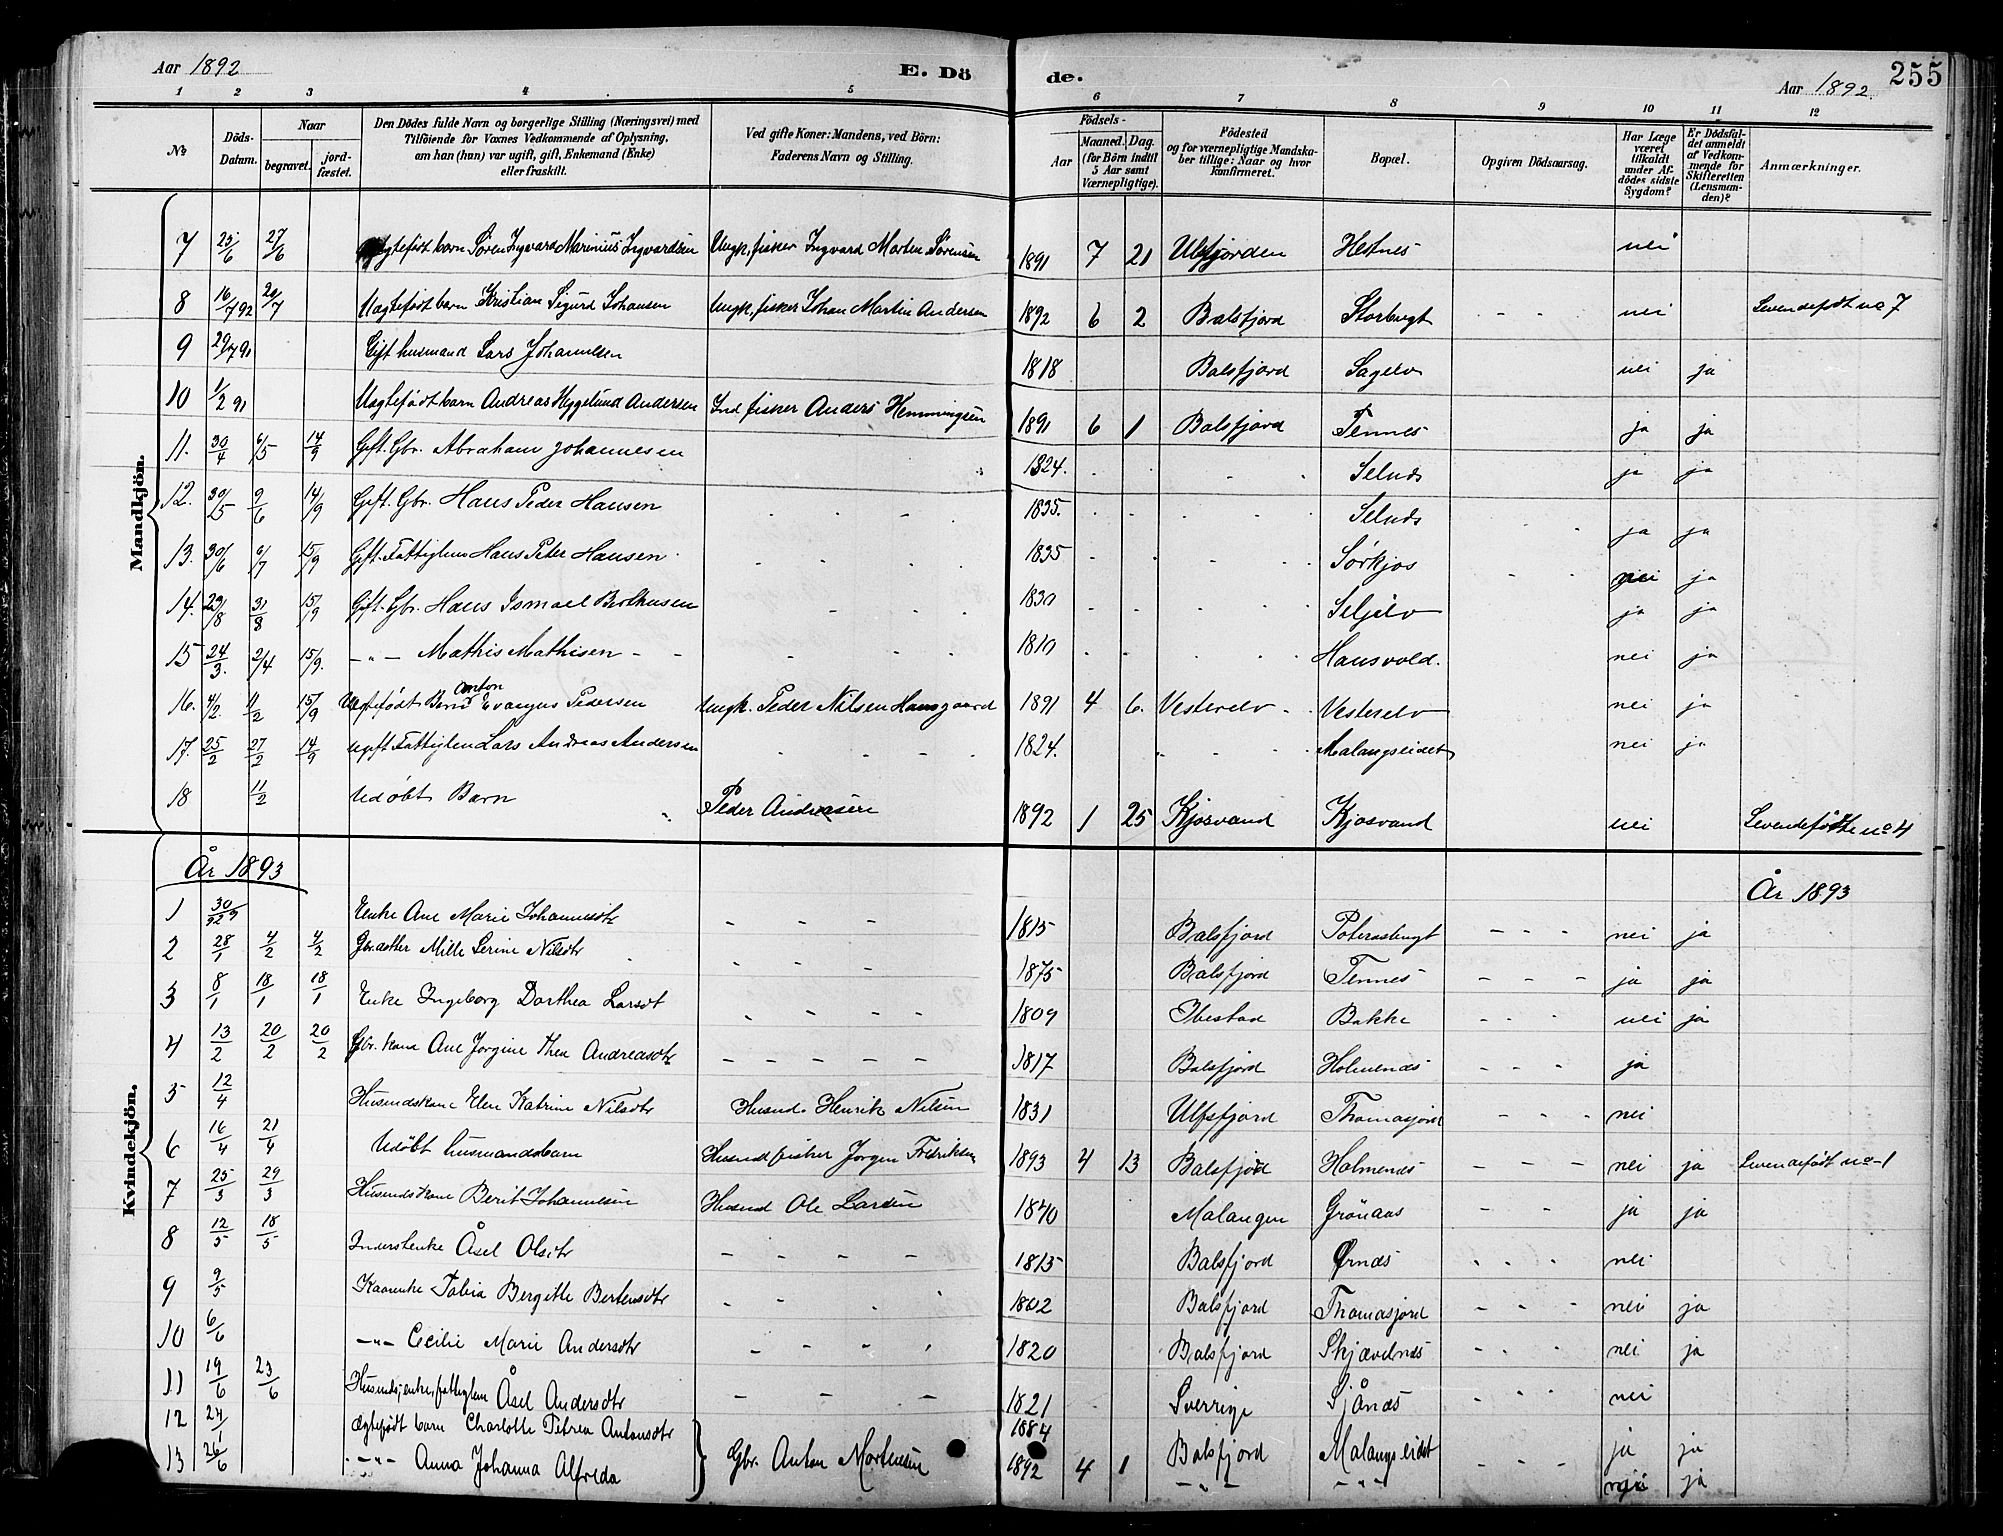 Aar 1892
E. Dö
de.
Aar 1892.
255
1 2 3 4 5 6 7 8 9 10 11 12
No
Döds-Datum.
Naar
begravet.
jord-fæstet.
Den Dödes fulde Navn og borgerlige Stilling (Næringsvei) med
Tilföiende for Voxnes Vedkommende af Oplysning,
om han (hun) var ugift, gift, Enkemand (Enke)
eller fraskilt.
Ved gifte Koner: Mandens, ved Börn:
Faderens Navn og Stilling.
Födsels-
Aar
Maaned. Dag.
(for Börn indtil
5 Aar samt
Værnepligtige).
Födested
og for værnepligtige Mandska-
ber tillige: Naar og hvor
konfirmeret.
Bopæl.
Opgiven Dödsaarsag.
Har Læge
været
tilkaldt
under Af-
dödes sidste
Sygdom?
Er Dödsfal-
det anmeldt
af Vedkom-
mende for
Skifteretten
(Lensman-
den)?
Anmærkninger.
Mandkjön.
7 25/6 27/6 Uægtefødt barn Søren Ingvard Marinius Ingvardsen Ungk, fisker Ingvard Morten Sörensen 1891 7 21 Ulfsfjorden Hetnes nei
8 16/7 92 20/7 Uægtefødt barn Kristian Sigurd Johansen Ungk, fisker Johan Martin Andersen 1892 6 2 Balsfjord Storbugt - - nei Levendefødt no 7
9 29/7 91 Gift husmand Lars Johannesen 1818 Balsfjord Sagelv nei ja
10 1/2 91 Uægtefødt barn Andreas Hygelund Andersen Ind fisker Anders Hemmingsen 1891 6 1 Balsfjord Tennes ja ja
11. 30/4 6/5 14/9 Gift. Gbr. Abraham Johannesen 1824. Selnds ja ja
12. 30/5 9/6 14/9 Gift. Gbr. Hans Peder Hansen 1835. Selnds ja ja
13. 30/6 6/7 15/9 Gift. Fattiglem Hans Peter Hansen 1835 Sørkjos nei ja
14. 29/8 31/8 15/9 Gift. Gbr. Hans Ismael Berthusen 1830 Seljelv ja ja
15 24/3. 2/4 15/9. -"- Mathis Mathisen - 1810 Hansvold. nei ja
16. 4/2. 11/2 15/9 Uægtefødt Barn Anton Evangus Pedersen Ungk. Peder Nilsen Hansgaard 1891 4 6. Vesterelv Vesterelv nei ja
17. 25/2 27/2 14/9 Ugift Fattiglem Lars Andreas Andersen 1824. " Malangseidet nei ja
18 11/2 Udøbt Barn Peder Andreasen 1892 1 25 Kjosvand Kjosvand nei Levendefødte no 4
Kvindekjön.
År 1893
År 1893
1 30/12 92 Enke Ane Marie Johannesdtr - - - 1815 Balsfjord Peterasbugt - - - nei ja
2 28/1 4/2 4/2 Gbrdatter Mille Serine Nilsdtr 1875 Balsfjord Tennes - - - ja ja
3 8/1 18/1 18/1 Enke Ingeborg Dorthea Larsdt 1809 Ibestad Bakke nei ja
4 13/2 20/2 20/2 Gbr. kone Ane Jorgine Thea Andreasdtr - - - - - 1817 Balsfjord Holmenes - - - ja
5 12/4 Husmdskone Elen Katrine Nilsdtr Husmd. Henrik Nilsen 1831 Ulfsfjord Thomasjord - - - nei
6 16/4 21/4 Udøbt husmandsbarn Husmd fisker Jorgen Fredriksen 1893 4 13 Balsfjord Holmenes - - - nei ja Levendefødt no 1
7 25/3 29/3 Husmdskone Berit Johannesen Husmd Ole Larsen 1840 Malangen Grönaas - - ja ja
8 12/5 18/5 Inderstenke Åsel Olsdtr - - - - 1815 Balsfjord Ørnes nei
9 9/5 Kaarenke Tobia Bergitte Bertensdtr 1802 Balsfjord Thomasjord - - - nei ja
10 6/6 -"- Cecilie Marie Andersdtr 1820 Balsfjord Skjævelnes nei ja
11 19/6 23/6 Husmdsenke, fattiglem Åsel Andersdtr - - - - 1821 Sverrige Sjånes nei
12 24/1 Ægtefødt barn Charlotte Petrea Antonsdtr } Gbr. Anton Mortensen 1884 Balsfjord Malangseidet ja ja
13 26/6 -"- Anna Johanna Alfreda 1892 4 1 -"- -"- nei ja